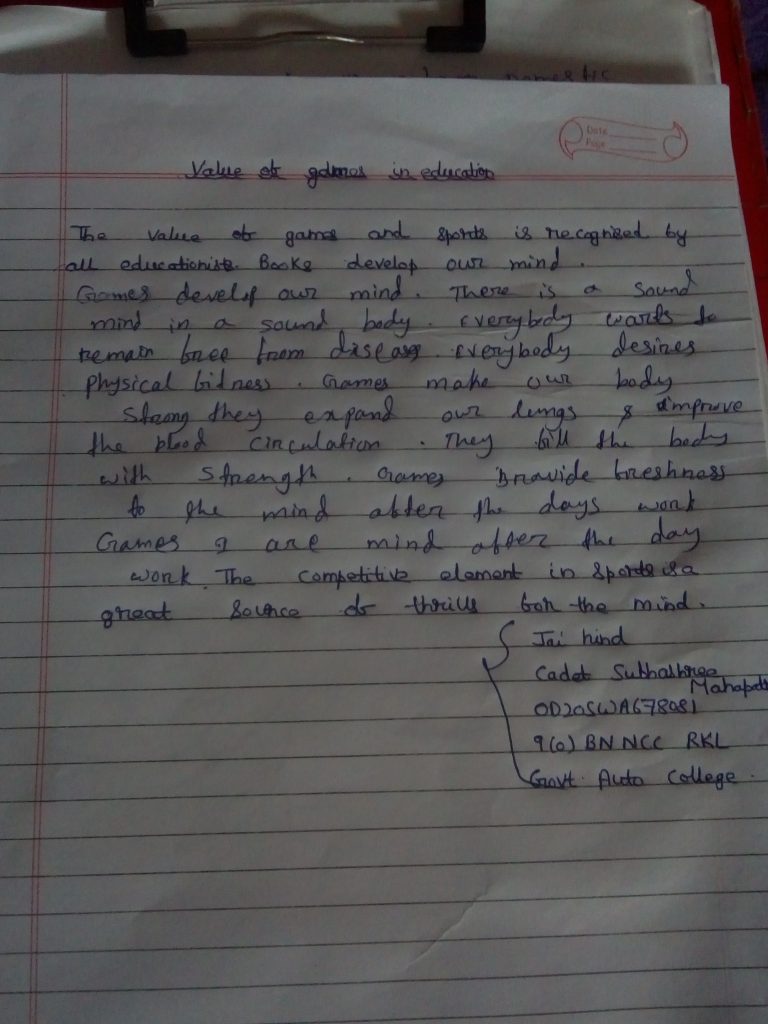 Date
Page
Value of games in education
The value of games and sports is recognised by
all educationists. Books develop our mind.
Games develop our mind. There is a sound
mind in a sound body. Everybody wants to
remain free from diseases. Everybody desires
physical fitness. Games make our body
strong they expand our lungs & improve
the blood circulation. They fill the body
with strength. Games provide freshness
to the mind after the days work
Games are mind after the day
work. The competitive element in sports is a
great source of thrills for the mind.
Jai hind
Cadet Subhashree
Mahapatra
OD20SWA678081
9(O) BN NCC RKL
Govt. Auto College.